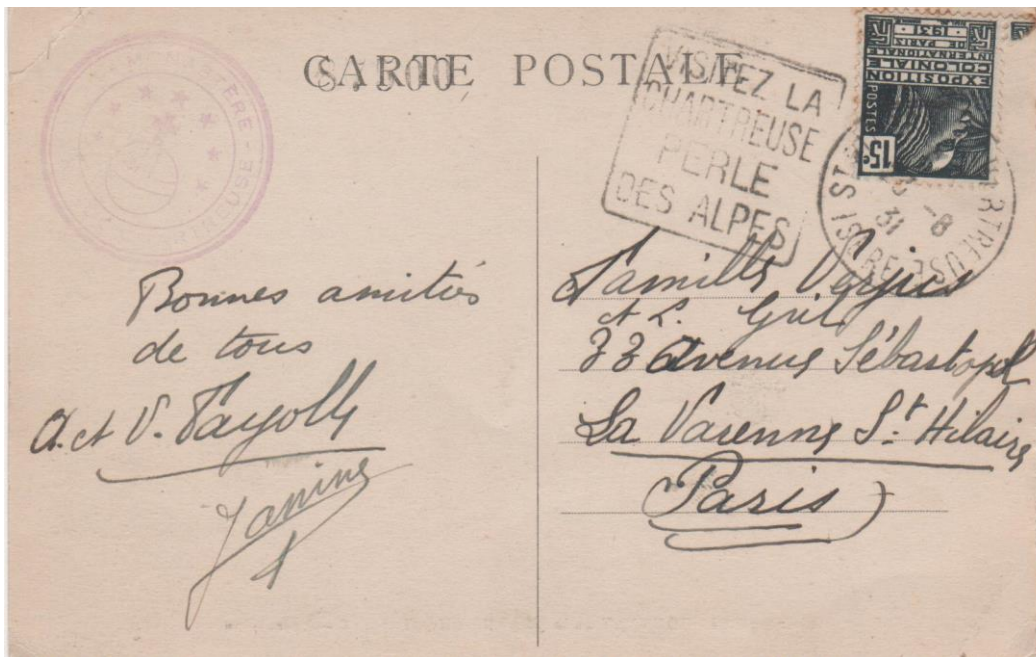 CARTE POSTALE
S. 500
VISITEZ LA
CHARTREUSE
PERLE
DES ALPES
EXPOSITION
COLONIALE
INTERNATIONALE
DE PARIS
1931
POSTES
15c
-8
31
ISERE
Bonnes amitiés
de tous
A. et V. Fayolle
Janine
Famille
et L.
33 avenue Sébastopol
La Varenne St Hilaire
Paris